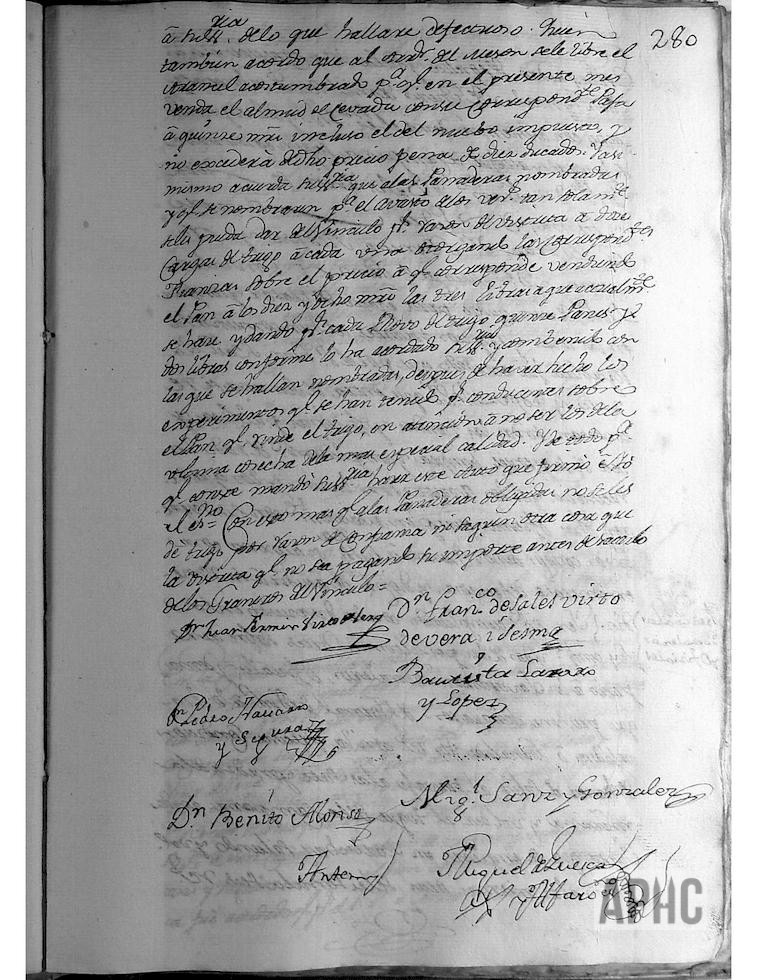 280
â su Sría. de lo que hallare defectuoso. Y bien
tambien acordo que al Arrdr. del Meson se le libre el
Aranzel acostumbrado pa. qe. en el presente mes
venda el almud de Cevada con su Correspondte. Paja
â quinze mrs. incluso el del nuebo impuesto, y
no excederà dedho. precio pena de diez ducados. Y asi
mismo acuerda su Sría. que alas Panaderas nombradas
y qe. se nombraren pa. el avasto de los vez.s tan solamte.
se les pueda dar del Vinculo pr. razon de a doze
Cargas de trigo â cada una otorgando las Correspondtes.
Fianzas sobre el precio â qe. corresponde vendiendo
el Pan â los diez y ocho mrs. las tres libras a que actualmte.
se haze y dando pr. cada Robo de trigo quinze Panes de
dos libras conforme lo ha acordado su Sría. y combenido con
las que se hallan nombradas, despues de haver hecho los
experimentos qe. se han tenido pr. conducentes sobre
el Pan qe. rinde el trigo, en atencion â no ser los de la
vltima cosecha dela mas especial calidad. Y de todo pa.
qe. conste mandò su Sría hazer este Auto que firmò è Yo
el esno.= Con esto mas qe. alas Panaderas obligadas no se les
dè trigo por razon de Confianza ni seguir otra cosa que
la qe. no sea pagando su importe antes de sacarlo
de los Graneros del Vinculo=
Dn. Juan Fermin Virto
Dn. Franco. de Sales Virto
de vera i Lesma
Bautista Lazaro
y Lopez
Dn. Pedro Navarro
y Segura
Migl. Sanz y Gonzalez
Dn. Benito Alonso
Antemi
Miguel de Huesca
y Alfaro
APHC